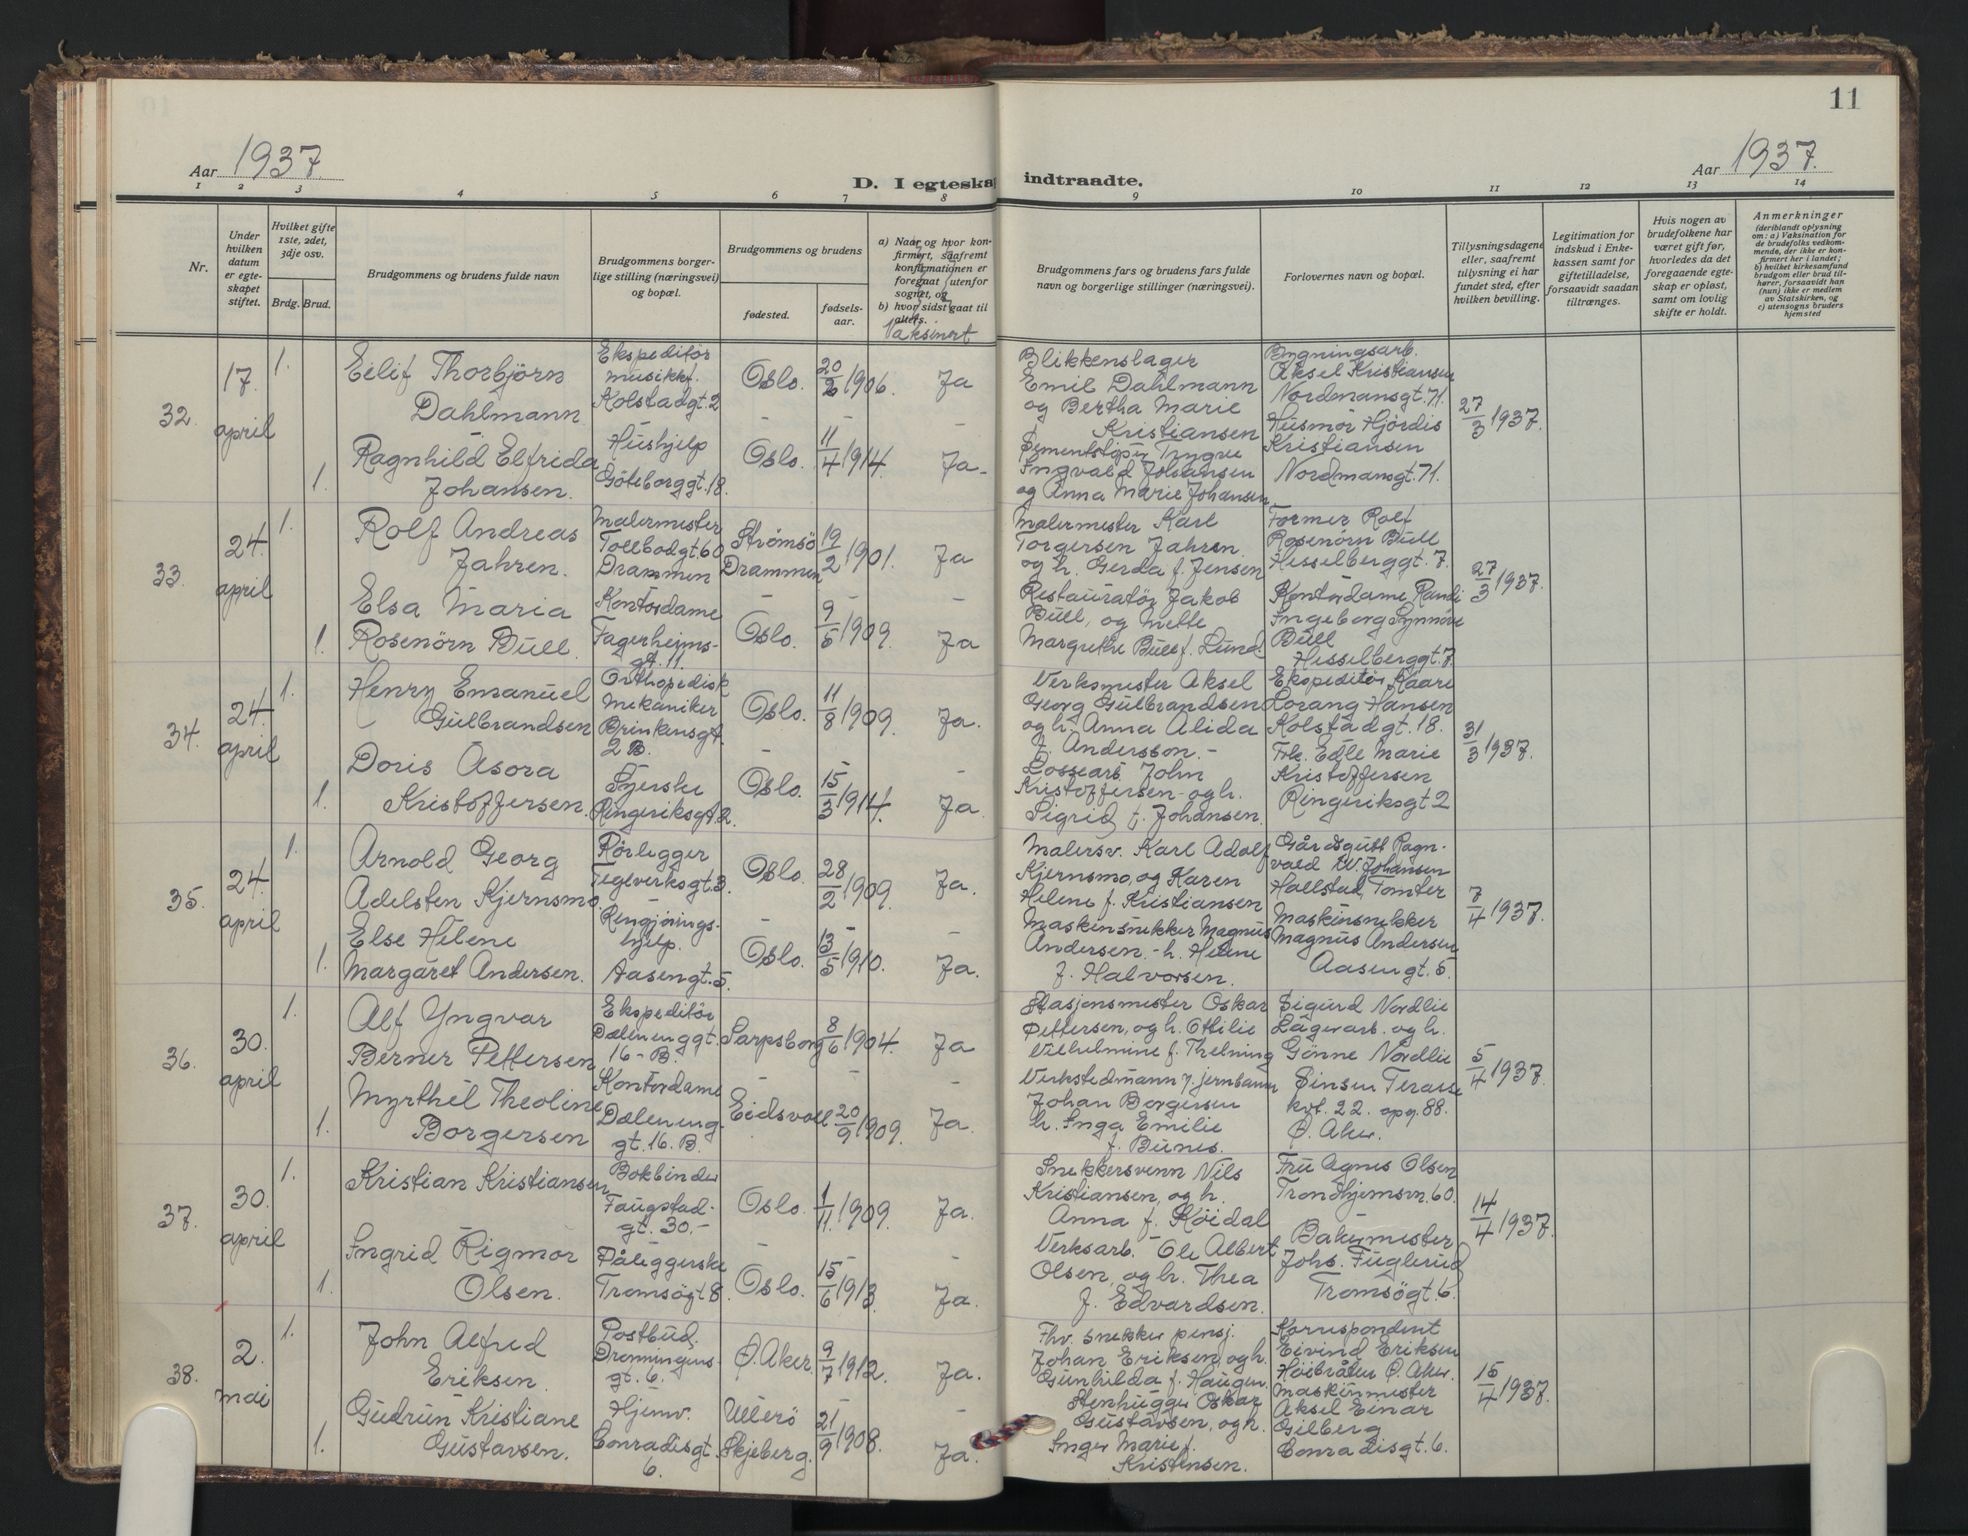 11
Aar 1937.
D. I egteska
indtraadte.
Aar 1937.
1 2 3 4 5 6 7 8 9 10 11 12 13 14
Nr.
Under hvilken datum er egteskapet stiftet.
Hvilket gifte 1ste, 2det, 3dje osv.
Brdg. Brud.
Brudgommens og brudens fulde navn
Brudgommens borgerlige stilling (næringsvei) og bopæl.
Brudgommens og brudens
fødested.
fødsels-aar.
a) Naar og hvor konfirmert, saafremt konfirmationen er foregaat utenfor sognet, og
b) hvor sidst gaat til alters.
Vaksinert
Brudgommens fars og brudens fars fulde navn og borgerlige stillinger (næringsvei).
Forlovernes navn og bopæl.
Tillysningsdagene eller, saafremt tillysning ei har fundet sted, efter hvilken bevilling.
Legitimation for indskud i Enkekassen samt for giftetilladelse, forsaavidt saadan tiltrænges.
Hvis nogen av brudefolkene har været gift før, hvorledes da det foregaaende egteskap er opløst, samt om lovlig skifte er holdt.
Anmerkninger
(deriblandt oplysning om: a) Vaksination for de brudefolks vedkommende, der ikke er konfirmert her i landet; b) hvilket kirkesamfund brudgom eller brud tilhører, forsaavidt han (hun) ikke er medlem av Statskirken, og c) utensogns bruders hjemsted
32.
17. april
1.
Eilif Thorbjörn
Dahlmann
Ekspeditör
musikkf.
Kolstadgt. 2
Oslo.
20/2 1906.
Ja
Blikkenslager
Emil Dahlmann
og Bertha Marie
Kristiansen
Bygningsarb.
Aksel Kristiansen
Nordmansgt. 71.
Husmor Hjördis
Kristiansen
Nordmansgt. 71.
27/3 1937.
1.
Ragnhild Elfrida
Johansen.
Hushjelp
Göteborggt. 18.
Oslo.
11/4 1914
Ja-
Sementstöper Trygve
Ingvald Johansen
og Anna Marie Johansen
33.
24. april
1.
Rolf Andreas
Jahren.
Malermester
Tollbodgt. 60
Drammen
Strömsö
Drammen
19/2 1901.
Ja
Malermester Karl
Torgersen Jahren
og h. Gerda f. Jensen
Former Rolf
Rosenörn Bull
Hesselberggt. 7.
Kontordame Randi
Ingeborg Synnöve
Bull
Hesselberggt. 7.
27/3 1937.
1.
Elsa Maria
Rosenörn Bull.
Kontordame
Fagerheims-
gt. 11.
Oslo.
9/5 1909.
Ja
Restauratör Jakob
Bull, og Mette
Margrethe Bull f. Lund.
34.
24. april
1.
Henry Emanuel
Gulbrandsen
Orthopedisk
mekaniker
Brinkensgt.
2 B.
Oslo.
11/8 1909.
Ja.
Verksmester Aksel
Georg Gulbrandsen
og h. Anna Alida
f. Andersson.-
Ekspeditör Kaare
Lorang Hansen
Kolstadgt. 18.
Frk. Edle Marie
Kristoffersen
Ringeriksgt 2
31/3 1937.
1.
Doris Asora
Kristoffersen.
Syerske
Ringeriksgt. 2.
Oslo.
15/3 1914.
Ja.
Lossearb. John
Kristoffersen og h.
Sigrid f. Johansen.
35.
24. april
1.
Arnold Georg
Adelsten Kjernsmo.
Rörlegger
Teglverksgt. 3.
Oslo.
28/2 1909.
Ja.
Malersv. Karl Adolf
Kjernsmo, og Karen
Helene f. Kristiansen
Gårdsgutt Ragn-
vald W. Johansen
Hallstad, Tomter
Maskinsnekker
Magnus Andersen
Aasengt. 5.
7/4 1937.
1.
Else Helene
Margaret Andersen.
Rengjörings-
hjelp.
Aasengt. 5.
Oslo.
13/5 1910.
Ja.
Maskinsnekker Magnus
Andersen.- h. Helene
f. Halvorsen.
36.
30. april
1.
Alf Yngvar
Berner Pettersen
Ekspeditör
Dælenenggt.
16-B.
Sarpsborg
8/6 1904.
Ja
Stasjonsmester Oskar
Pettersen, og h. Otilie
Vilhelmine f. Thelning
Sigurd Nordlie
Lagerarb. og h.
Gönne Nordlie
Sinsen Terasse
kvt. 22. opg. 88.
Ö. Aker.
5/4 1937.
1.
Myrthel Theoline
Borgersen
Kontordame
Dæleneng.
gt. 16. B.
Eidsvoll
20/9 1909.
Ja.
Verkstedmann v. jernbanen
Johan Borgersen
h. Inga Emilie
f. Bunes.
37.
30. april
1.
Kristian Kristiansen
Bokbinder
Faugstad-
gt. 30.-
Oslo.
1/11 1909.
Ja.
Snekkersvenn Nils
Kristiansen, og h.
Anna f. Köidal
Fru Agnes Olsen
Trondhjemsvn. 60.
Bakermester
Johs. Fuglerud
Tromsögt. 6.
14/4 1937.
1.
Ingrid Rigmor
Olsen.
Påleggerske
Tromsögt 8.
Oslo.
15/6 1913.
Ja.
Verksarb. Ole Albert
Olsen, og h. Thea
f. Edvardsen.
38.
2. mai
1.
John Alfred
Eriksen.
Postbud.
Dronningens-
gt. 6.
Ö. Aker.
9/7 1912.
Ja.
Fhv. snekker pensj.
Johan Eriksen, og h.
Gunhilda f. Haugen.
Korrespondent
Eivind Eriksen
Höibråten Ö. Aker.
Maskinmester
Aksel Einar
Gilberg
Conradisgt. 6.
15/4 1937.
1.
Gudrun Kristiane
Gustavsen.
Hjemv.
Conradisgt.
6.
Ullerö
Skjeberg.
21/9 1908.
Ja.
Stenhugger Oskar
Gustavsen, og h.
Inger Marie f.
Kristensen.